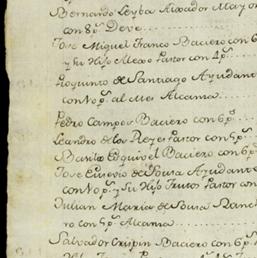 Bernardo Leyba Aiuador Mayor
con 8 p.s Deve
Jose Miguel Franco Baciero con 6
y su Hijo Pastor con 4 p.s
de Santiago Ayudante
con 10 p.s al Mes Alcansa
Pedro Campos Baciero con 6 p.s
Leandro de los Reyes Pastor con 5 p.s
Esquivel Baciero con 6 p.s
Jose Eusevio de Sousa Ayudante
con 10 p.s y su Hijo Pastor con
Julian Maria de Sousa Ranche
ro con 5 p.s Alcansa
Salvador Crispin Baciero con 6 p.s